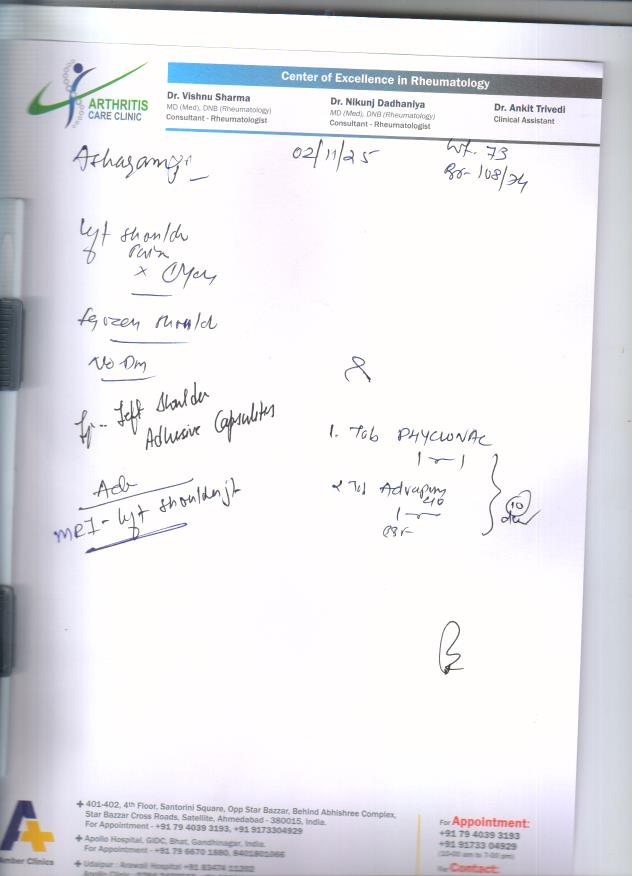 Center of Excellence in Rheumatology
ARTHRITIS
CARE CLINIC
Dr. Vishnu Sharma
MD (Med), DNB (Rheumatology)
Consultant - Rheumatologist
Dr. Nikunj Dadhaniya
MD (Med), DNB (Rheumatology)
Consultant - Rheumatologist
Dr. Ankit Trivedi
Clinical Assistant
02/11/25
Wt. 73
108/74
Left should
Pain
x
frozen should
No DM
Left Shoulder
Adhesive Capsulites
Adv
MRI - Left shoulder jt
1. Tab PHYCLONAC
1 — 1
2 Tab
40
1 —
BBF
10
+ 401-402, 4th Floor, Santorini Square, Opp Star Bazzar, Behind Abhishree Complex,
Star Bazzar Cross Roads, Satellite, Ahmedabad - 380015, India.
For Appointment - +91 79 4039 3193, +91 9173304929
+ Apollo Hospital, GIDC, Bhat, Gandhinagar, India.
For Appointment - +91 79 6670 1880, 8401801066
+ Udaipur : Arawali Hospital +91 83474 11262
For Appointment:
+91 79 4039 3193
+91 91733 04929
(10-00 am to 7-00 pm)
For Contact:
A+
Amber Clinics